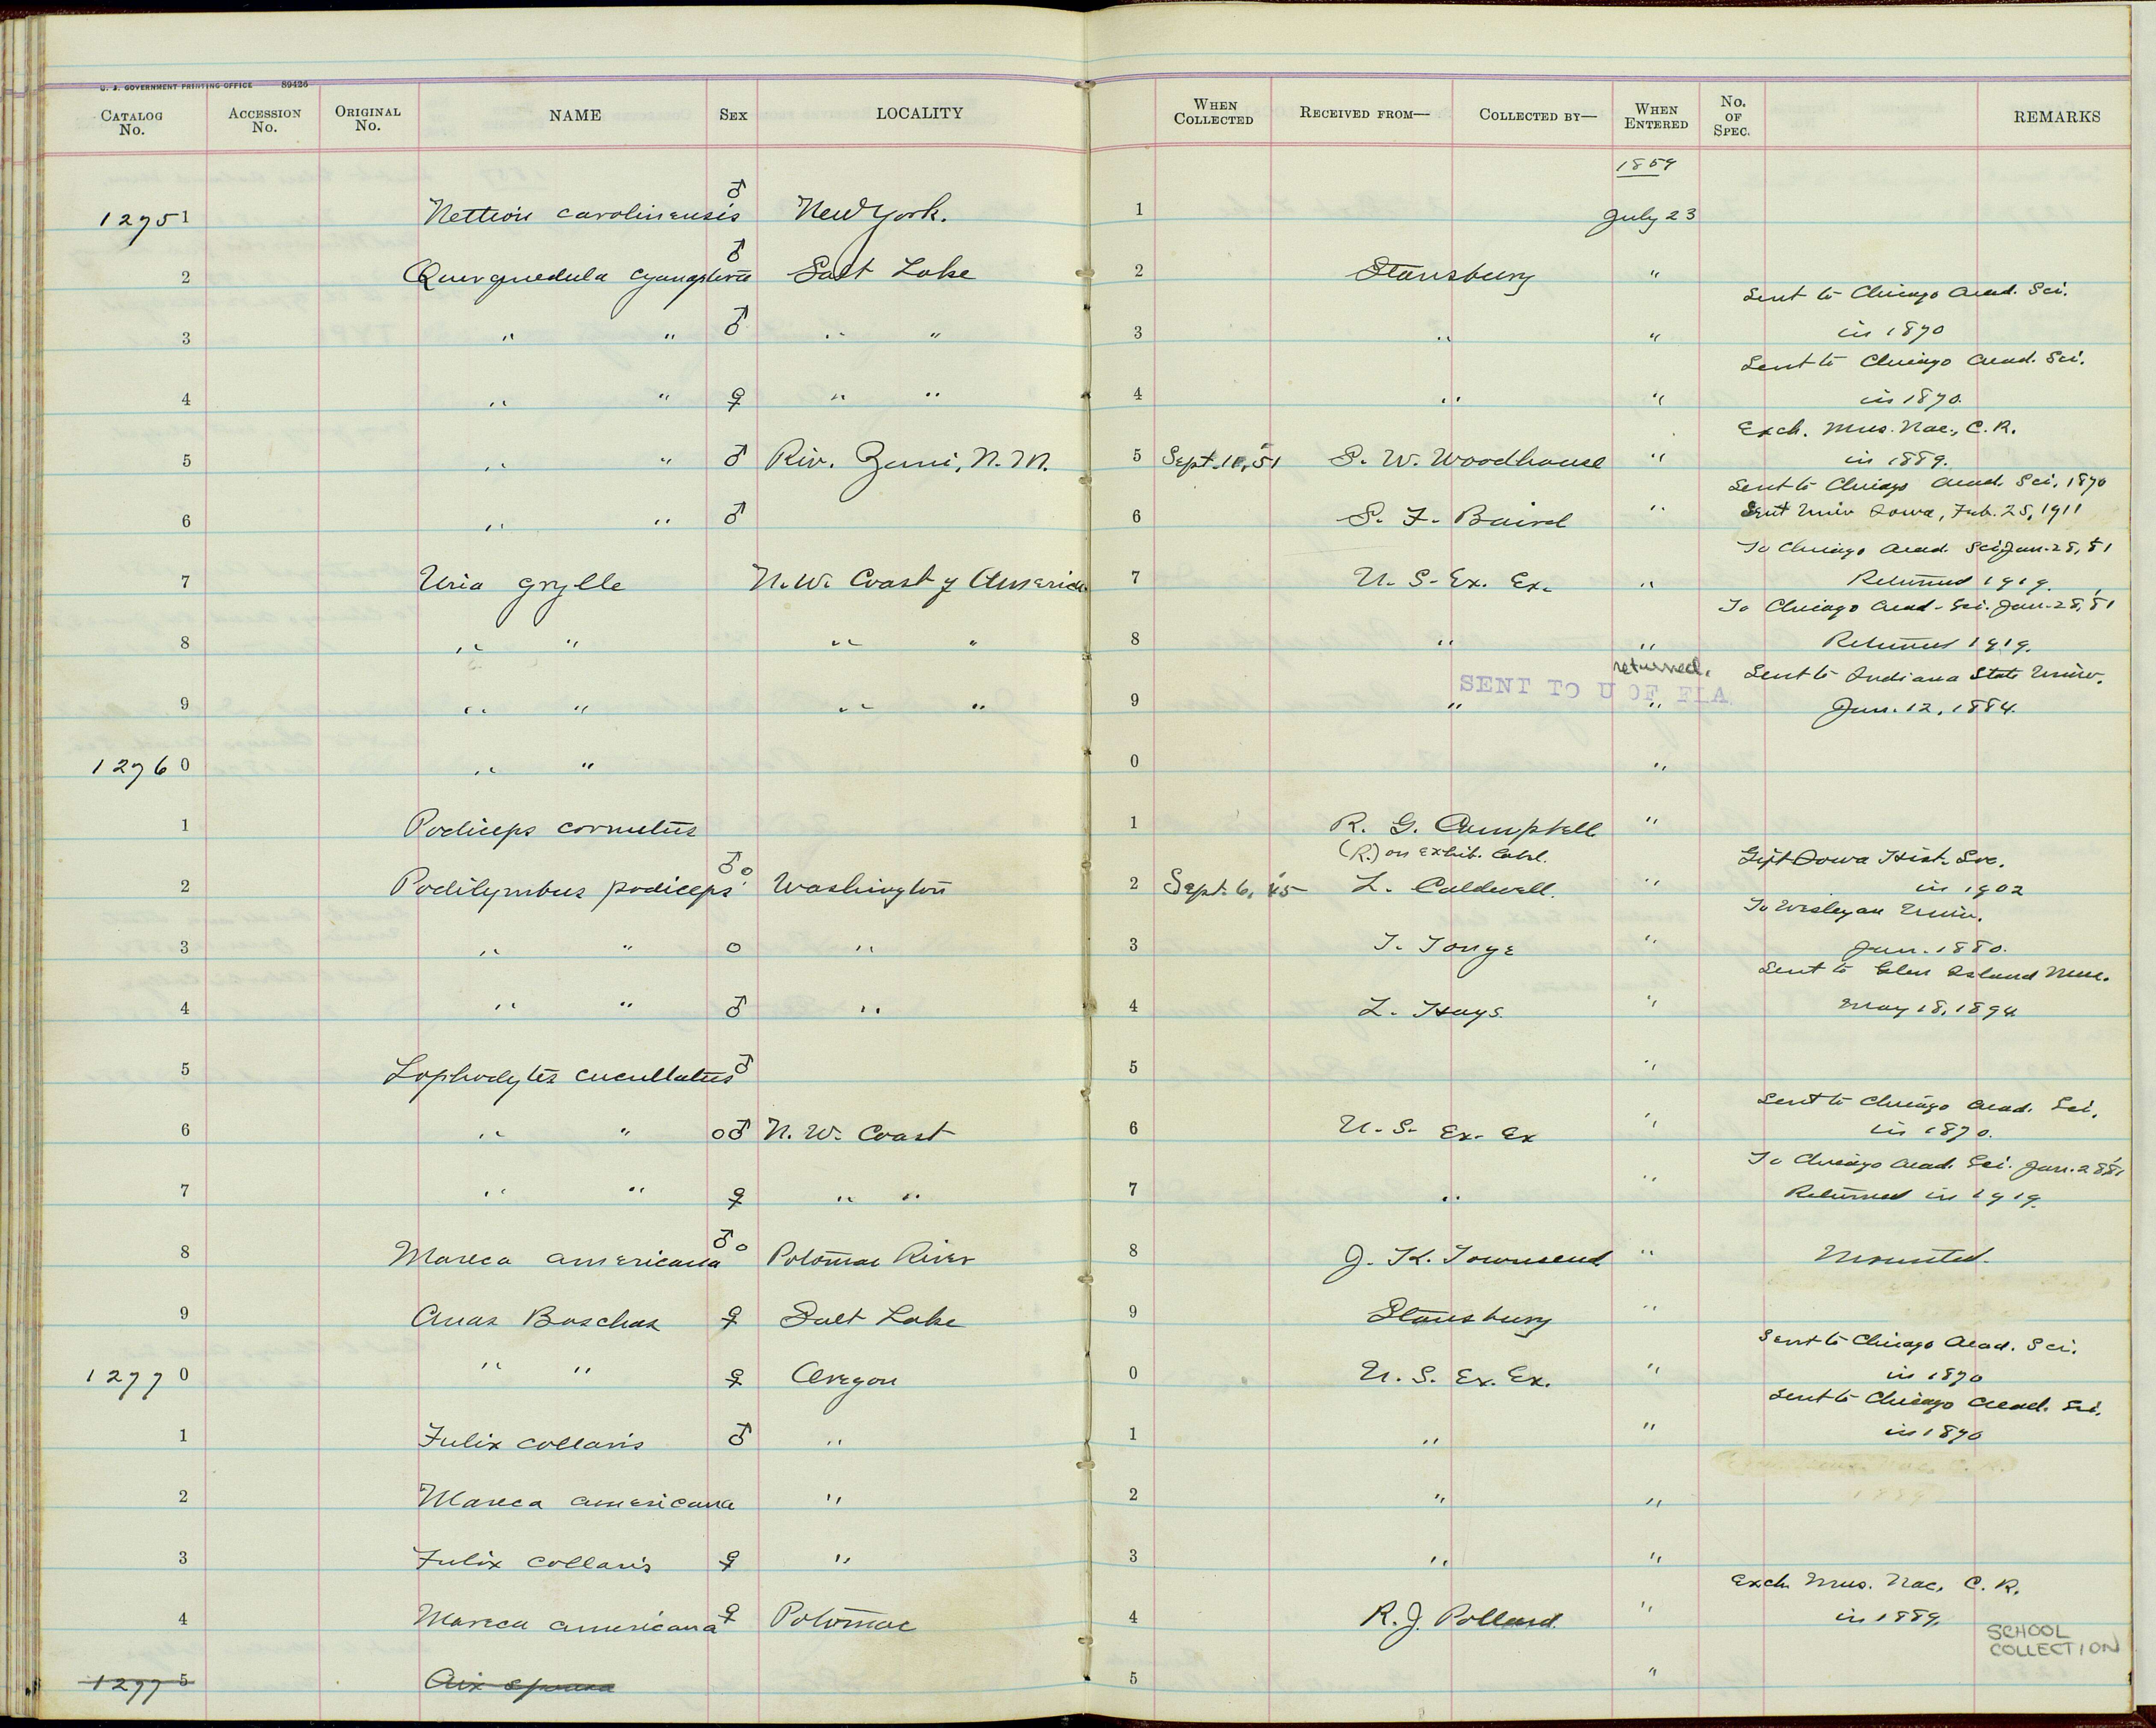 U. S. GOVERNMENT PRINTING OFFICE 89426
CATALOG No. ACCESSION No. ORIGINAL No. NAME SEX LOCALITY WHEN COLLECTED RECEIVED FROM— COLLECTED BY— WHEN ENTERED No. OF SPEC. REMARKS
1859
12751 Nettion carolinensis ♂ New York. 1 July 23
2 Querquedula cyanoptera ♂ Salt Lake 2 Stansbury "
Sent to Chicago Acad. Sci.
3 " " ♂ " " 3 " " in 1870
Sent to Chicago Acad. Sci.
4 " " ♀ " " 4 " " in 1870.
Exch. Mus. Nac., C. R.
5 " " ♂ Riv. Zuni, N. M. 5 Sept. 18, '51 S. W. Woodhouse " in 1889.
Sent to Chicago Acad. Sci. 1870
6 " " ♂ 6 S. F. Baird " Sent Univ Iowa, Feb. 25, 1911
To Chicago Acad. Sci. Jan. 28, '81
7 Uria grylle N. W. Coast of America 7 U. S. Ex. Ex. " Returned 1919.
To Chicago Acad. Sci. Jan. 28, '81
8 " " " " 8 " " Returned 1919.
returned. Sent to Indiana State Univ.
SENT TO U OF FLA.
9 " " " " 9 " " Jan. 12, 1884.
12760 " " 0 "
1 Podiceps cornutus 1 R. G. Campbell "
(R.) on Exhib. Cabl. Gift Iowa Hist. Soc.
2 Podilymbus podiceps ♂ o Washington 2 Sept. 6, '45 L. Caldwell. " in 1902
To Wesleyan Univ.
3 " " o " 3 T. Tonge " Jan. 1880.
Sent to Glen Island Mus.
4 " " ♂ " 4 L. Hays. " May 18, 1894
5 Lophodytes cucullatus ♂ 5 "
Sent to Chicago Acad. Sci.
6 " " o ♂ N. W. Coast 6 U. S. Ex. Ex " in 1870.
To Chicago Acad. Sci. Jan. 28 '81
7 " " ♀ " " 7 " " Returned in 1919.
8 Mareca americana ♂ o Potomac River 8 J. K. Townsend " Mounted.
9 Anas Boschas ♀ Salt Lake 9 Stansbury "
Sent to Chicago Acad. Sci.
12770 " " ♀ Oregon 0 U. S. Ex. Ex. " in 1870
Sent to Chicago Acad. Sci.
1 Fulix collaris ♂ " 1 " " in 1870
2 Mareca americana " 2 " "
3 Fulix collaris ♀ " 3 " "
Exch. Mus. Nac. C. R.
4 Mareca americana ♀ Potomac 4 R. J. Pollard. " in 1889.
SCHOOL
COLLECTION
12775 Aix sponsa 5 "